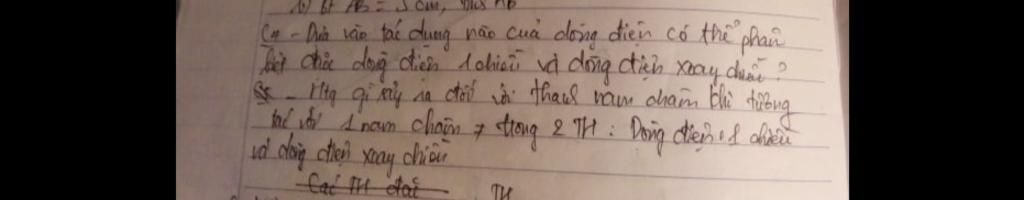 b) G/ AB = 5 cm,
C4 - Dựa vào tác dụng nào của dòng điện có thể phân
biệt được dòng điện 1 chiều và dòng điện xoay chiều?
- Htg gì xảy ra đối với thanh nam châm khi tương
tác với 1 nam châm ≠ trong 2 TH : Dòng điện 1 chiều
và dòng điện xoay chiều
Các TH đặt TH